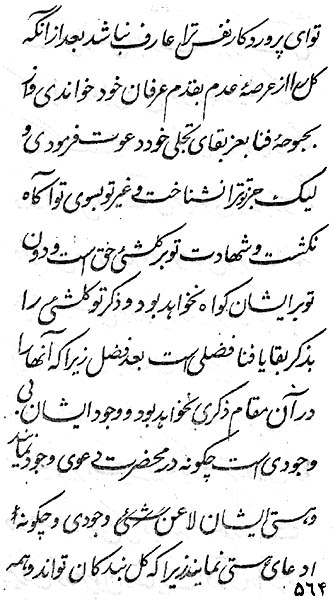 توای پروردگار نفس ترا عارف نباشد بعد ازآنکه
کل را از عرصهٔ عدم بقدم عرفان خود خواندی واز
بحبوحهٔ فنا بعز بقای تجلی خود دعوت فرمودی و
لیک جز تو ترا نشناخت و غیر تو بسوی تو آگاه
نگشت و شهادت تو بر کلشئ حق است و دون
تو بر ایشان گواه نخواهد بود و ذکر تو کلشئ را
بذکر بقا یا فنا فضلی است بعد فضل زیرا که آنها را
در آن مقام ذکری نخواهد بود و وجود ایشان بی
وجودی است چگونه در محضرت دعوی وجود نمایند
و هستی ایشان لا عن شئ وجودی و چگونه
ادعای هستی نمایند زیرا که کل بندگان تواند و همه
۵۶۴